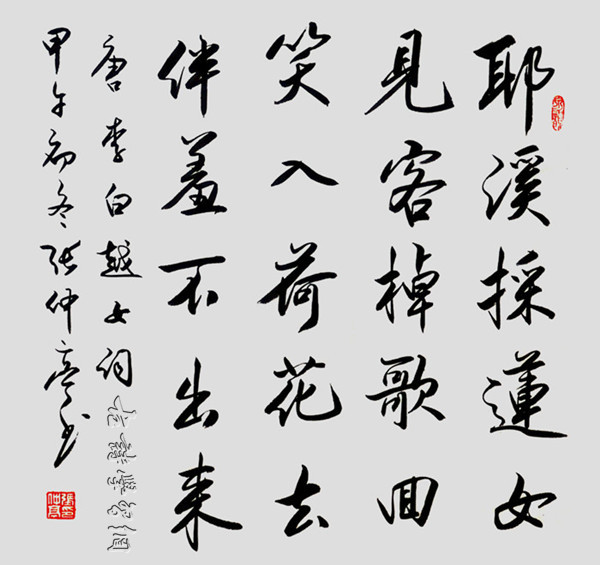 耶溪採蓮女
見客棹歌回
笑入荷花去
伴羞不出来
唐李白越女词
甲午初冬张仲亭书